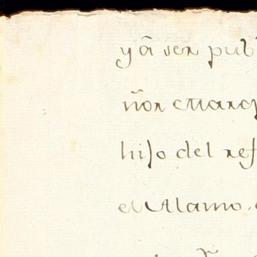 yã ser pub
ñor Marq
hijo del ref
el Alamo.